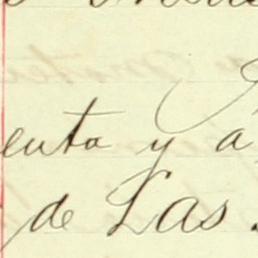 enta y a
de Las